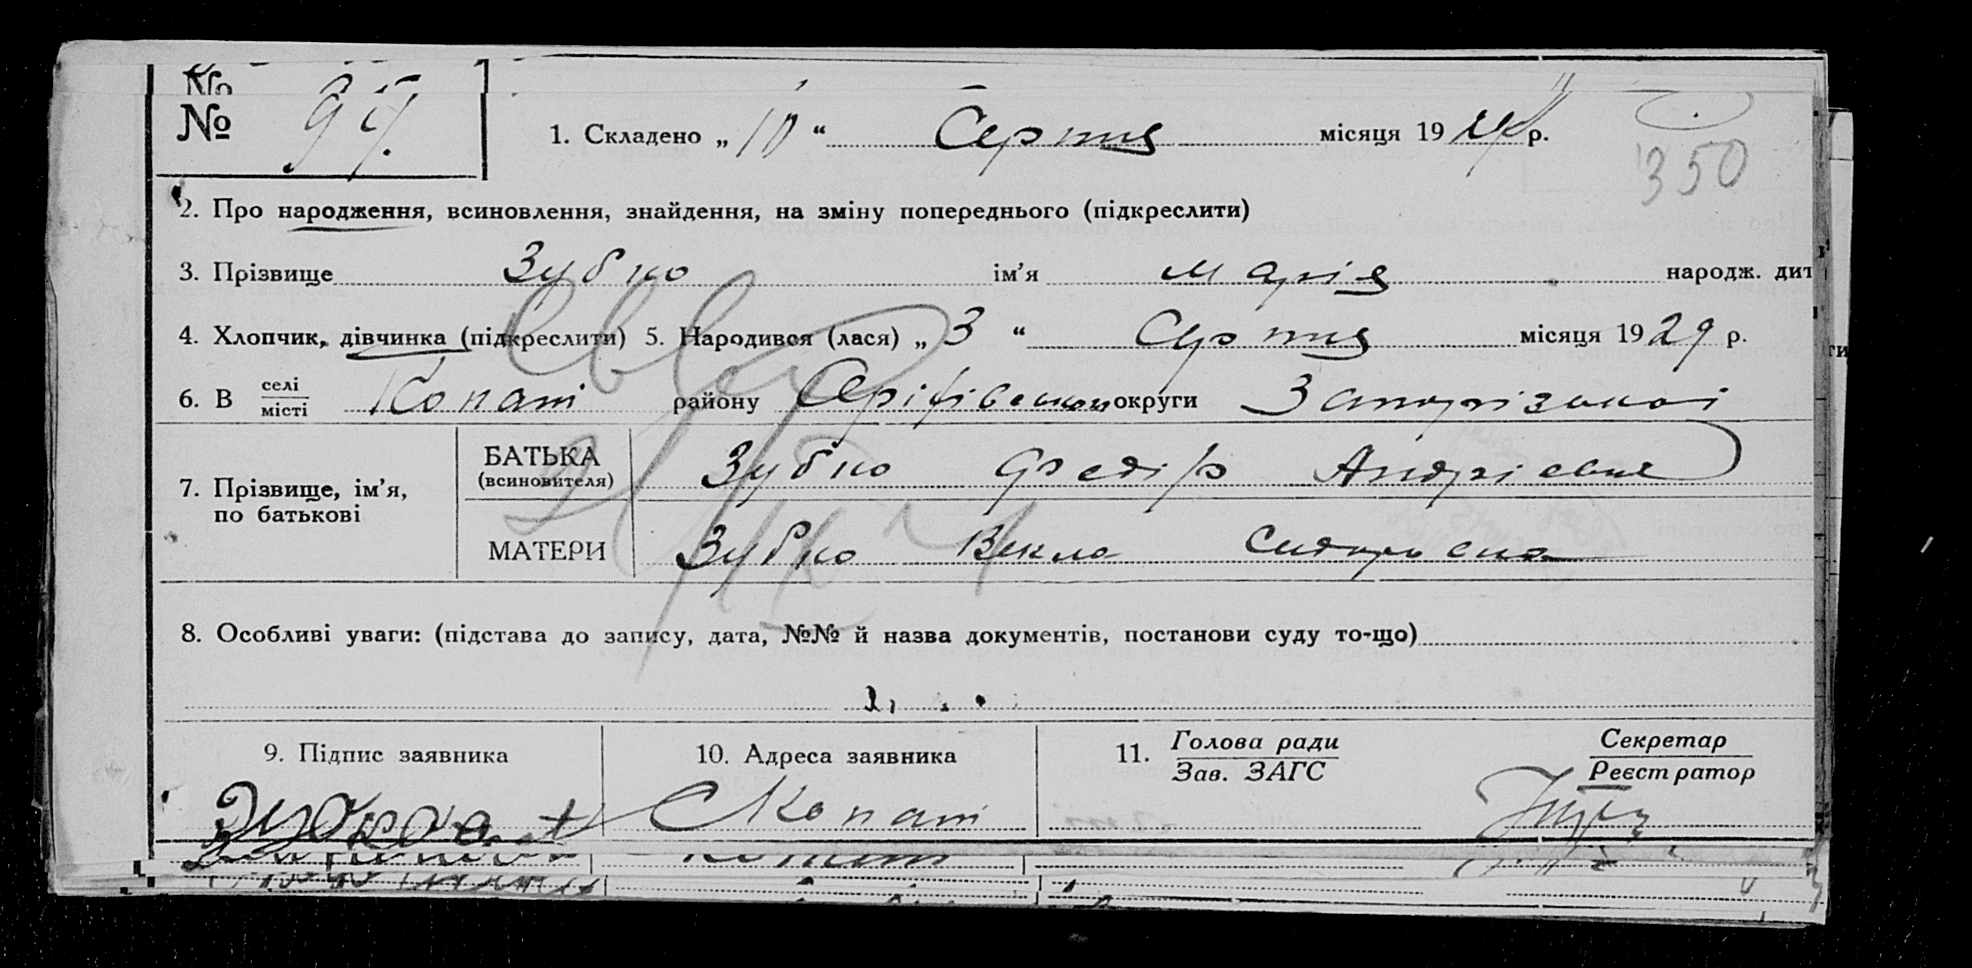 №
№ 97.
1. Складено „10“ Серпня місяця 1929 р.
350
2. Про народження, всиновлення, знайдення, на зміну попереднього (підкреслити)
3. Прізвище Зубко ім’я Марія народж. дит
4. Хлопчик, дівчинка (підкреслити) 5. Народився (лася) „3“ Серпня місяця 1929 р.
6. В селі / місті Копані району округи Запорізької
7. Прізвище, ім’я, по батькові
БАТЬКА (всиновителя) Зубко Федір Андріевич
МАТЕРИ Зубко Векла Сидоровна
8. Особливі уваги: (підстава до запису, дата, №№ й назва документів, постанови суду то-що)
9. Підпис заявника 10. Адреса заявника 11. Голова ради / Зав. ЗАГС Секретар / Реєстратор
Копані